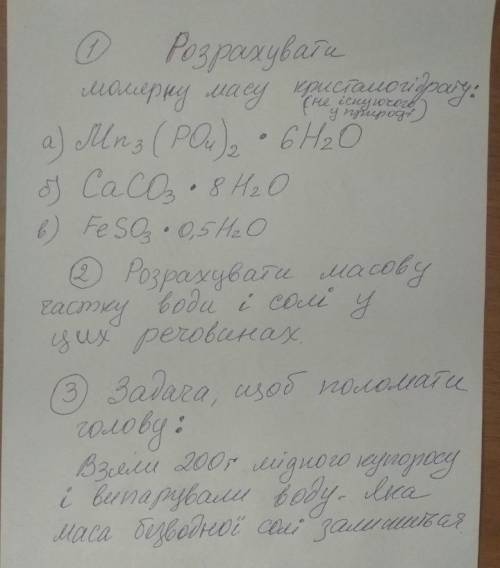 ① Розрахувати
молярну масу кристалогідрату:
(не існуючого
у природі)
а) Mn₃(PO₄)₂ • 6H₂O
б) CaCO₃ • 8H₂O
в) FeSO₃ • 0,5H₂O
② Розрахувати масову
частку води і солі у
цих речовинах.
③ Задача, щоб поломати
голову:
Взяли 200г мідного купоросу
і випарували воду. Яка
маса безводної солі залишиться